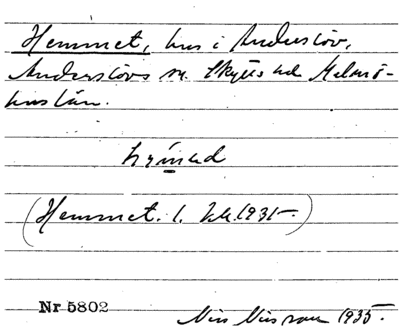 Hemmet, hus i Anderslöv,
Anderslövs sn. Skytts hd Malmö-
hus län.
(Hemmet. 1. Kk. 1931-)
Nr 5802
Nils Nilsson 1935.